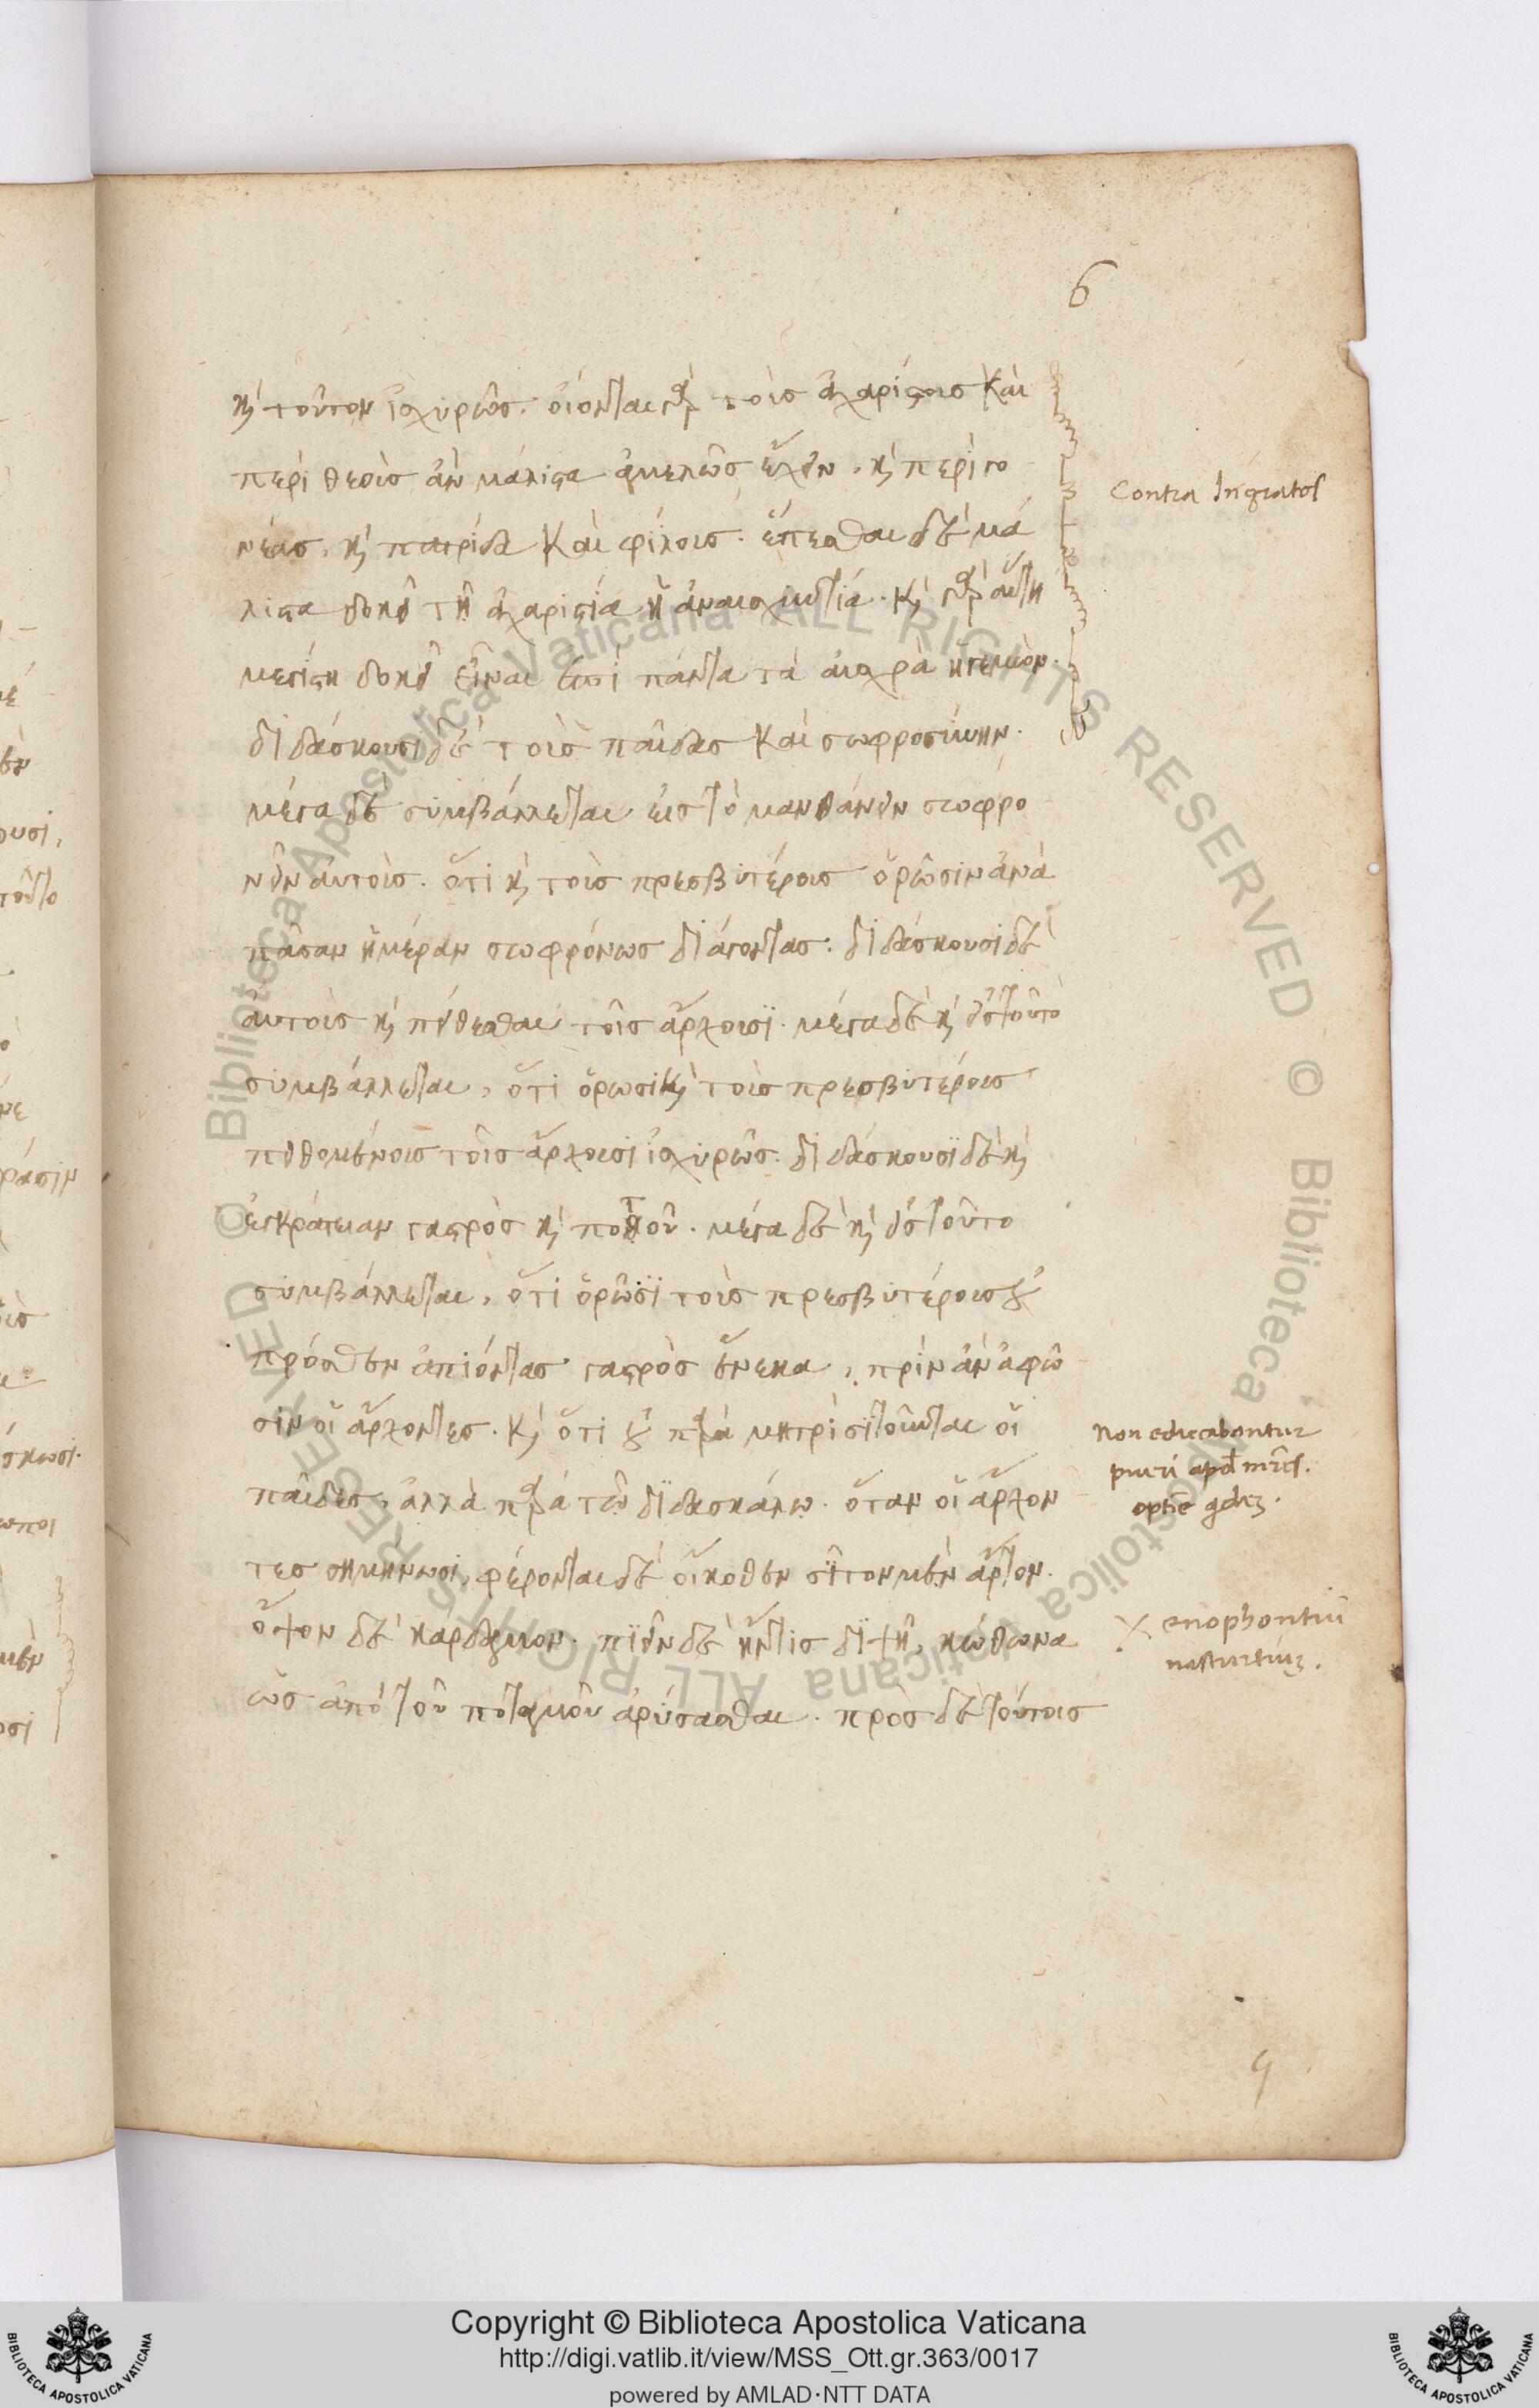 6
καὶ τοῦτον ἰσχυρῶς. οἴονται γὰρ τοὺς ἀχαρίστους καὶ
περὶ θεοὺς ἂν μάλιστα ἀμελῶς ἔχειν, καὶ περὶ γο
νέας, καὶ πατρίδα καὶ φίλους. ἕπεσθαι δὲ μά
λιστα δοκεῖ τῇ ἀχαριστίᾳ ἡ ἀναισχυντία. καὶ γὰρ αὕτη
μεγίστη δοκεῖ εἶναι ἐπὶ πάντα τὰ αἰσχρὰ ἡγεμών.
διδάσκουσι δὲ τοὺς παῖδας καὶ σωφροσύνην.
μέγα δὲ συμβάλλεται εἰς τὸ μανθάνειν σωφρο
νεῖν αὐτοὺς. ὅτι καὶ τοὺς πρεσβυτέρους ὁρῶσιν ἀνὰ
πᾶσαν ἡμέραν σωφρόνως διάγοντας. διδάσκουσι δὲ
αὐτοὺς καὶ πείθεσθαι τοῖς ἄρχουσι. μέγα δὲ καὶ εἰς τοῦτο
συμβάλλεται, ὅτι ὁρῶσι καὶ τοὺς πρεσβυτέρους
πειθομένους τοῖς ἄρχουσι ἰσχυρῶς. διδάσκουσι δὲ καὶ
ἐγκράτειαν γαστρὸς καὶ ποτοῦ. μέγα δὲ καὶ εἰς τοῦτο
συμβάλλεται, ὅτι ὁρῶσι τοὺς πρεσβυτέρους οὐ
πρόσθεν ἀπιόντας γαστρὸς ἕνεκα, πρὶν ἂν ἀφῶ
σιν οἱ ἄρχοντες. καὶ ὅτι οὐ παρὰ μητρὶ σιτοῦνται οἱ
παῖδες, ἀλλὰ παρὰ τῷ διδασκάλῳ. ὅταν οἱ ἄρχον
τες σημήνωσι, φέρονται δὲ οἴκοθεν σῖτον μὲν ἄρτον.
ὄψον δὲ κάρδαμον. πιεῖν δὲ ἤν τις διψῇ, κώθωνα
ὡς ἀπὸ τοῦ ποταμοῦ ἀρύσασθαι. πρὸς δὲ τούτοις
Contra Ingratos
Non educabantur
pueri apd mr̃es.
Xenophontiũ
nasturtiuʒ.
9
Biblioteca Apostolica Vaticana ALL RIGHTS RESERVED © Biblioteca Apostolica Vaticana ALL RIGHTS RESERVED ©
Copyright © Biblioteca Apostolica Vaticana
http://digi.vatlib.it/view/MSS_Ott.gr.363/0017
powered by AMLAD·NTT DATA
BIBLIOTECA APOSTOLICA VATICANA
BIBLIOTECA APOSTOLICA VATICANA